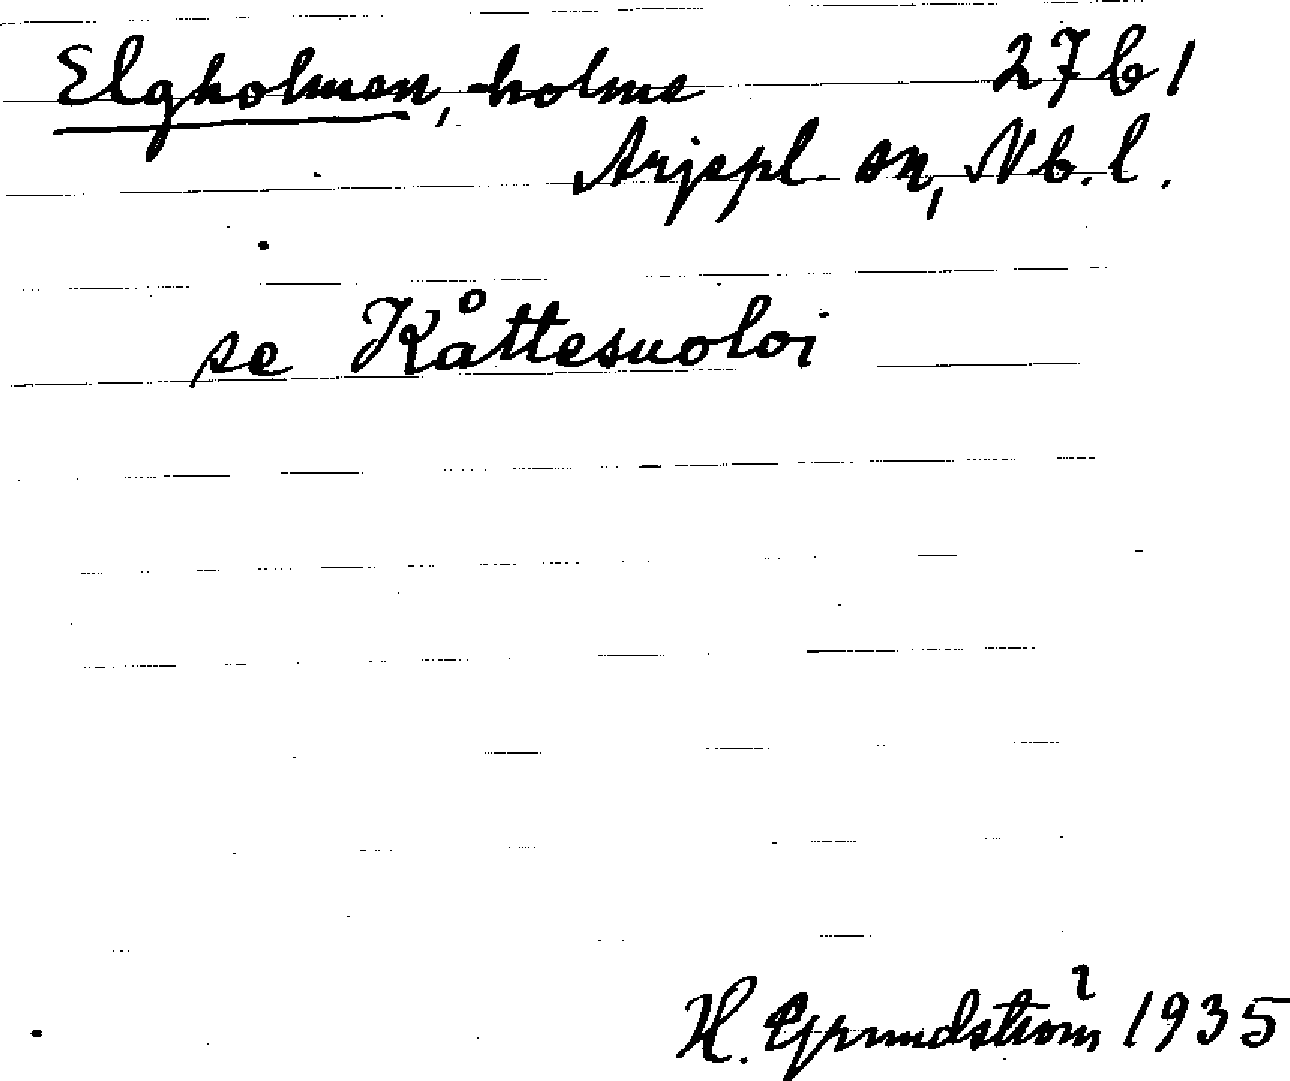 Elgholmen, -holme 27 b 1
Arjepl. sn, Nb. l.
se Kåttesuoloi
H. Grundström 1935